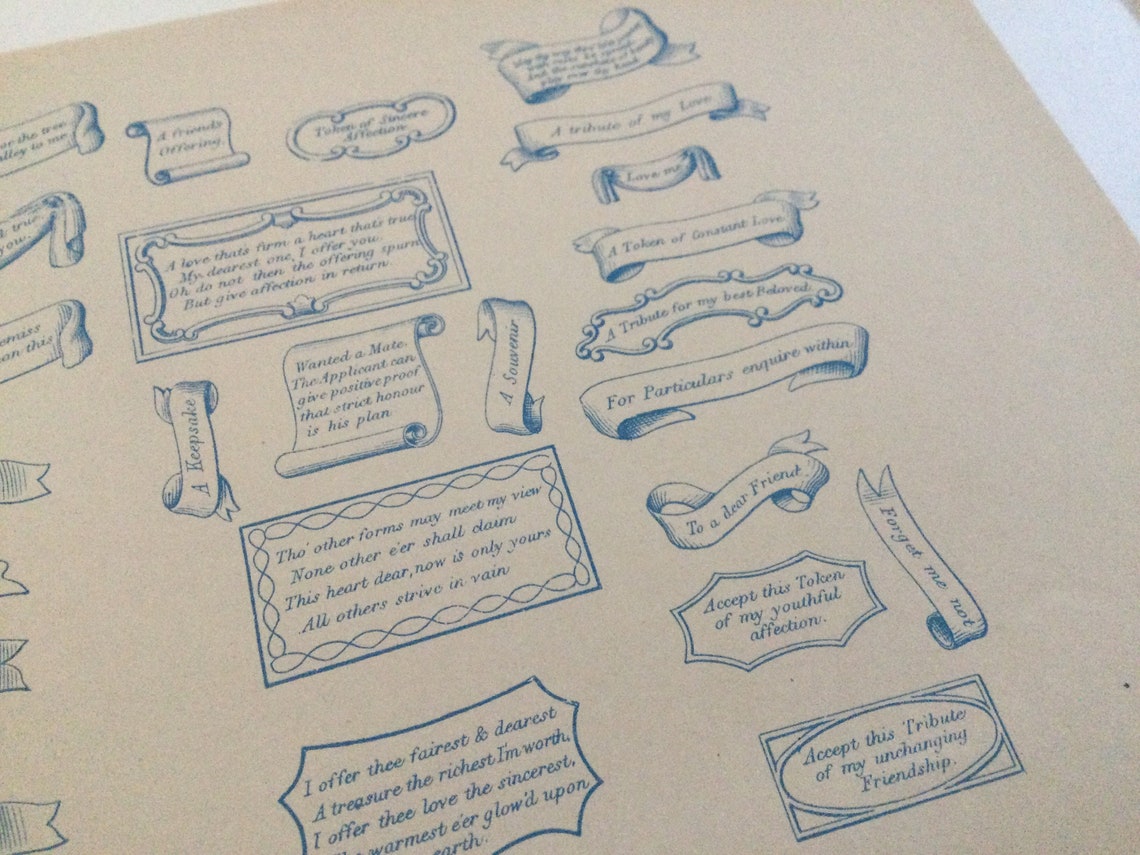 or the tree
alley to me
true
you.
emiss
on this
A friend's
Offering.
Token of Sincere
Affection
A love thats firm a heart that's true
My dearest one, I offer you.
Oh do not then the offering spurn
But give affection in return.
Wanted a Mate.
The Applicant can
give positive proof
that strict honour
is his plan
A Keepsake
A Souvenir
Tho' other forms may meet my view
None other e'er shall claim
This heart dear, now is only yours
All others strive in vain
I offer thee fairest & dearest
A treasure the richest I'm worth,
I offer thee love the sincerest,
warmest e'er glow'd upon
earth.
A tribute of my Love
Love me
A Token of Constant Love
A Tribute for my best Beloved.
For Particulars enquire within
To a dear Friend.
Forget me not
Accept this Token
of my youthful
affection.
Accept this Tribute
of my unchanging
Friendship.